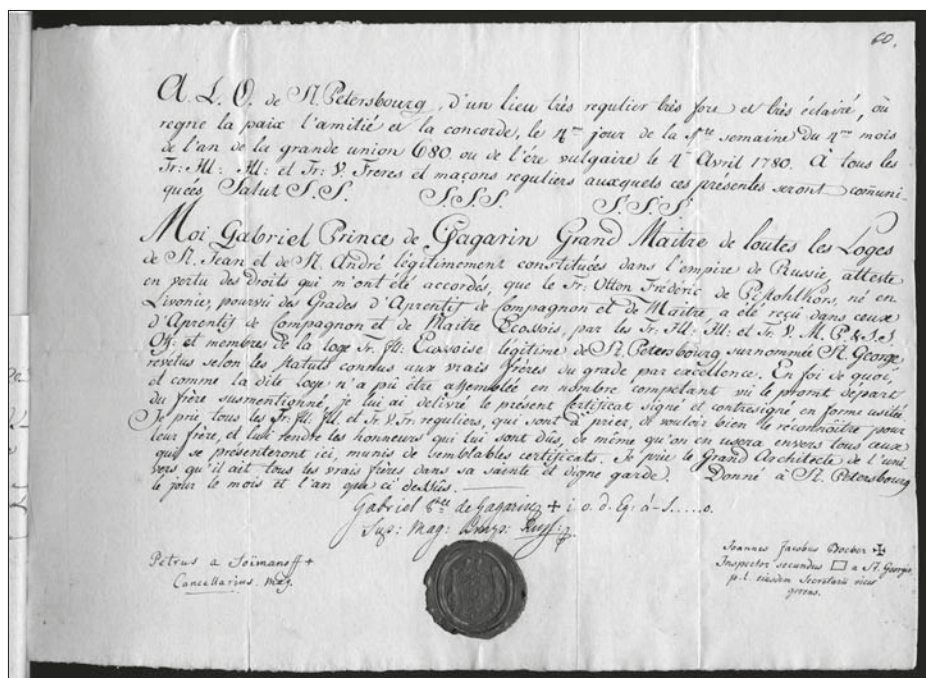 60.
A. L. O. de St. Petersbourg, d'un lieu très regulier très fort et très éclairé, où
regne la paix l'amitié et la concorde, le 4me jour de la 1re semaine du 4me mois
de l'an de la grande union 680 ou de l'ére vulgaire le 4 Avril 1780. A tous les
Tr: Ill: Ill: et Tr: V. Freres et maçons reguliers auxquels ces présentes seront comuni-
quées, Salut S.S. S.S.S. S.S.S.
Moi Gabriel Prince de Gagarin Grand Maitre de toutes les Loges
de St. Jean et de St. André légitimement constituées dans l'empire de Russie, atteste
en vertu des droits qui m'ont été accordés, que le Fr: Otton Frédéric de Pistohlkors, né en
Livonie, pourvû des Grades d'Aprentif de Compagnon et de Maitre, a été reçû dans ceux
d'Aprentif de Compagnon et de Maitre Ecossois, par les Tr: Ill: Ill: et Tr. V. M. P. & S.S.
Off: et membres de la loge Tr. Ill: Ecossoise légitime de St. Petersbourg surnommée St. George
revêtus selon les statuts connus aux vrais frères du grade par excellence. En foi de quoi,
et comme la dite loge n'a pû être assemblée en nombre compétant vû le promt départ
du frère susmentionné, je lui ai delivré le présent certificat signé et contresigné en forme usitée.
Je prie tous les Tr. Ill. Ill. et Tr. V. Fr: reguliers, qui sont à prier, de vouloir bien le reconnoitre pour
leur frère, et lui rendre les honneurs qui lui sont dûs, de même qu'on en usera envers tous ceux
qui se présenteront ici, munis de semblables certificats. Je prie le Grand Architecte de l'uni
vers qu'il ait tous les vrais frères dans sa sainte et digne garde. Donné à St. Petersbourg
le jour le mois et l'an que ci dessûs.
Gabriel Pce de Gagarin + i. o. d. Eq: à - S.....o.
Sup: Mag: Russ:
Petrus a Soïmanoff +
Cancellarius. Mag.
Joannes Jacobus Boeber ✠
Inspector secundus □ a St. Georgio
p. t. ejusdem Secretarii vices
gerens.